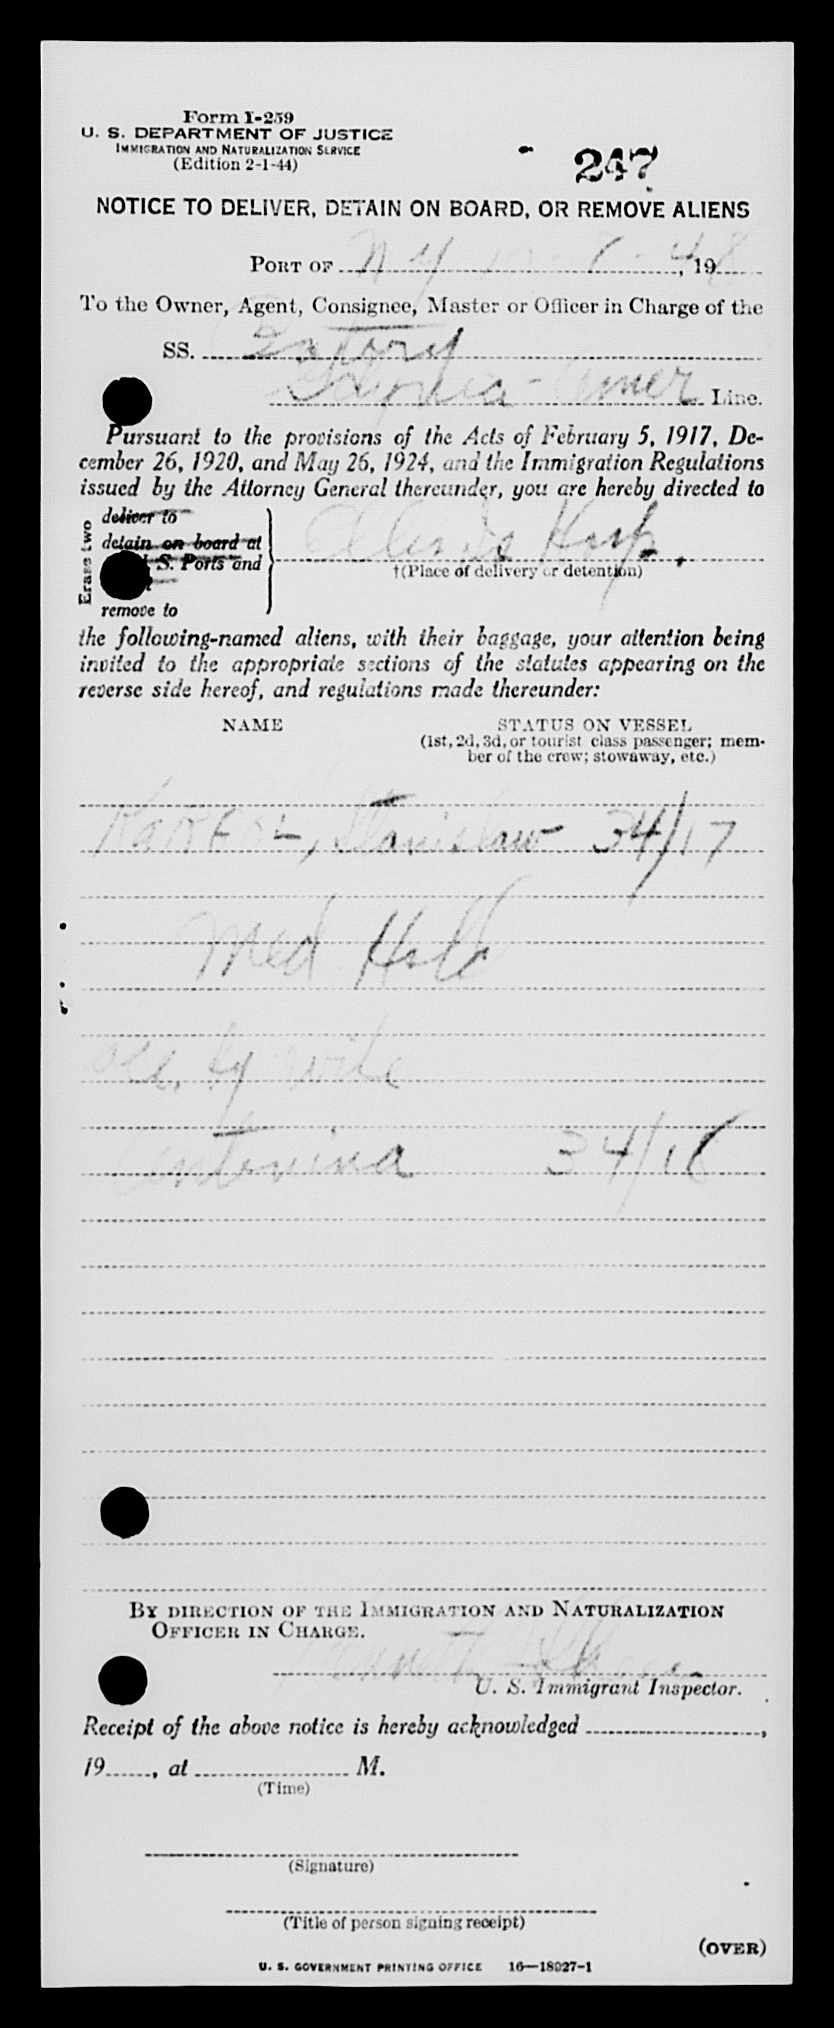 Form I-259
U. S. DEPARTMENT OF JUSTICE
IMMIGRATION AND NATURALIZATION SERVICE
(Edition 2-1-44)
247
NOTICE TO DELIVER, DETAIN ON BOARD, OR REMOVE ALIENS
PORT OF N Y , 1948
To the Owner, Agent, Consignee, Master or Officer in Charge of the
SS. Batory
Gdynia-Amer Line.
Pursuant to the provisions of the Acts of February 5, 1917, De-
cember 26, 1920, and May 26, 1924, and the Immigration Regulations
issued by the Attorney General thereunder, you are hereby directed to
Erase two
deliver to
detain on board at
S. Ports and
remove to
†(Place of delivery or detention)
the following-named aliens, with their baggage, your attention being
invited to the appropriate sections of the statutes appearing on the
reverse side hereof, and regulations made thereunder:
NAME STATUS ON VESSEL
(1st, 2d, 3d, or tourist class passenger; mem-
ber of the crew; stowaway, etc.)
Stanislaw 34/17
Med Hold
by wife
34/16
BY DIRECTION OF THE IMMIGRATION AND NATURALIZATION
OFFICER IN CHARGE.
U. S. Immigrant Inspector.
Receipt of the above notice is hereby acknowledged ,
19 , at M.
(Time)
(Signature)
(Title of person signing receipt)
(OVER)
U. S. GOVERNMENT PRINTING OFFICE 16—18027-1